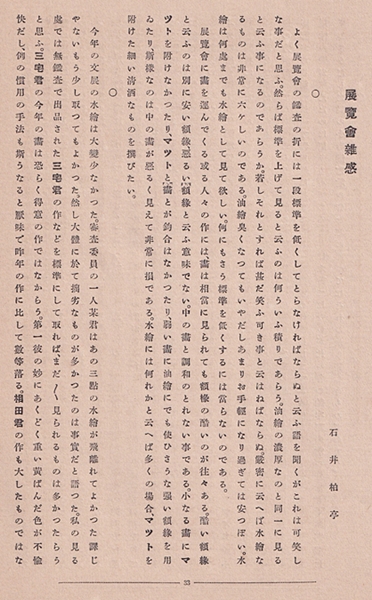 展覽會雜感
石井柏亭
〇
よく展覽會の鑑査の折には一段標準を低くしてとらなければならぬと云ふ語を聞くがこれは可笑し
な事だと思ふ。然らば標準を上げて見ると云ふのは何ういふ積りであらう。油繪の濃厚なのと同一に見る
と云ふ事になるのであらうか。若しそれとすれば甚だ笑ふ可き事と云はねばならぬ。嚴密に云へば水繪な
るものは非常に六ケしいのである。油繪臭くなつてもいやだしあまりお手輕になり過ぎては安つぽい。水
繪は何處までも水繪として見て欲しい。何にもさう標準を低くするには當らないのである。
展覽會に畫を運んでくる或る人々の作には畫は相當に見られても額緣の酷いのが往々ある。酷い額緣
と云ふのは別に安い額緣と云ふ意味でない。中の畫と調和のとれない事である。小なる畫にマ
ツトを附けなかつたり、マツトと、畫とが釣合はなかつたり、弱い畫に油繪にでも使ひさうな强い額緣を用
ゐたり、新樣なのは中の畫が惡るく見えて非常に損である。水繪には何れかと云へば多くの場合、マツトを
附けた細い淸洒なものを撰びたい。
〇
今年の文展の水繪は大變少なかつた。審査委員の一人某君はあの三點の水繪が飛離れてよかつた譯じ
やないもう少し取つてもよかつた。然し大體に於て拙劣なものが多かつたのは事實だと語つた。私の見る
處では無鑑査で出品された三宅君の作などを標準にして取ればまだ〱見られるものは多かつたらう
と思ふ。三宅君の今年の畫は恐らく得意の作ではなからう。第一彼の妙にあくどく重い黃ばんだ色が不愉
快だし、例の慣用の手法も斯うなると厭味で昨年の作に比して數等落る。相田君の作も大したものではな
33